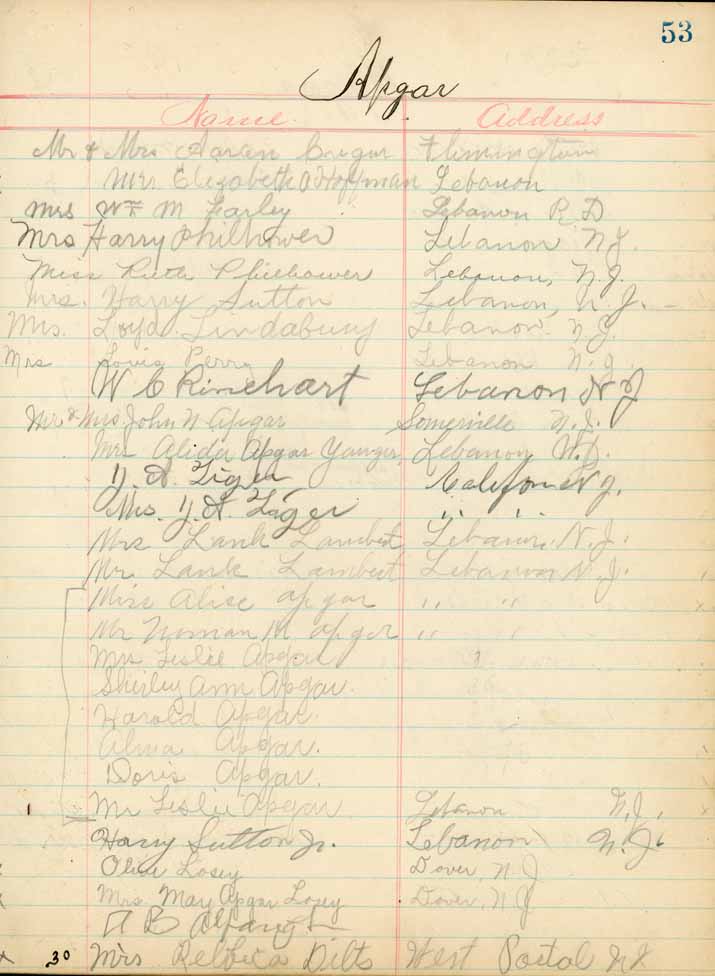 53
Apgar
Name Address
Mr & Mrs Aaran Cregar Flemington
Mrs. Elizabeth A Hoffman Lebanon
Mrs Wm M Farley Lebanon R D
Mrs Harry Philhower Lebanon N.J.
Miss Ruth Philhower Lebanon, N.J.
Mrs. Harry Sutton Lebanon, N. J.
Mrs. Loyd. Lindabury Lebanon. N. J.
Mrs Lovis Perry Lebanon N.J.
W C Rinehart Lebanon N J
Mr & Mrs John N Apgar Somerville N.J.
Mrs Alida Apgar Lebanon N.J.
Y. A. Tiger Califon N J.
Mrs. Y. A. Tiger " "
Mrs Lank Lambert Lebanon. N. J.
Mr. Lank Lambert Lebanon N. J.
Miss Alise apgar " "
Mr Norman M. apgar " "
Mrs Leslie Apgar
Shirley Ann Apgar.
Harold Apgar.
Alma Apgar.
Doris Apgar.
1 Mr Leslie Apgar Lebanon N.J.
Harry Sutton Jr. Lebanon N. J.
Olive Losey Dover, N J
Mrs. May Apgar Losey Dover, N J
A B
30 Mrs Rebbeca Dilts West Portal N J